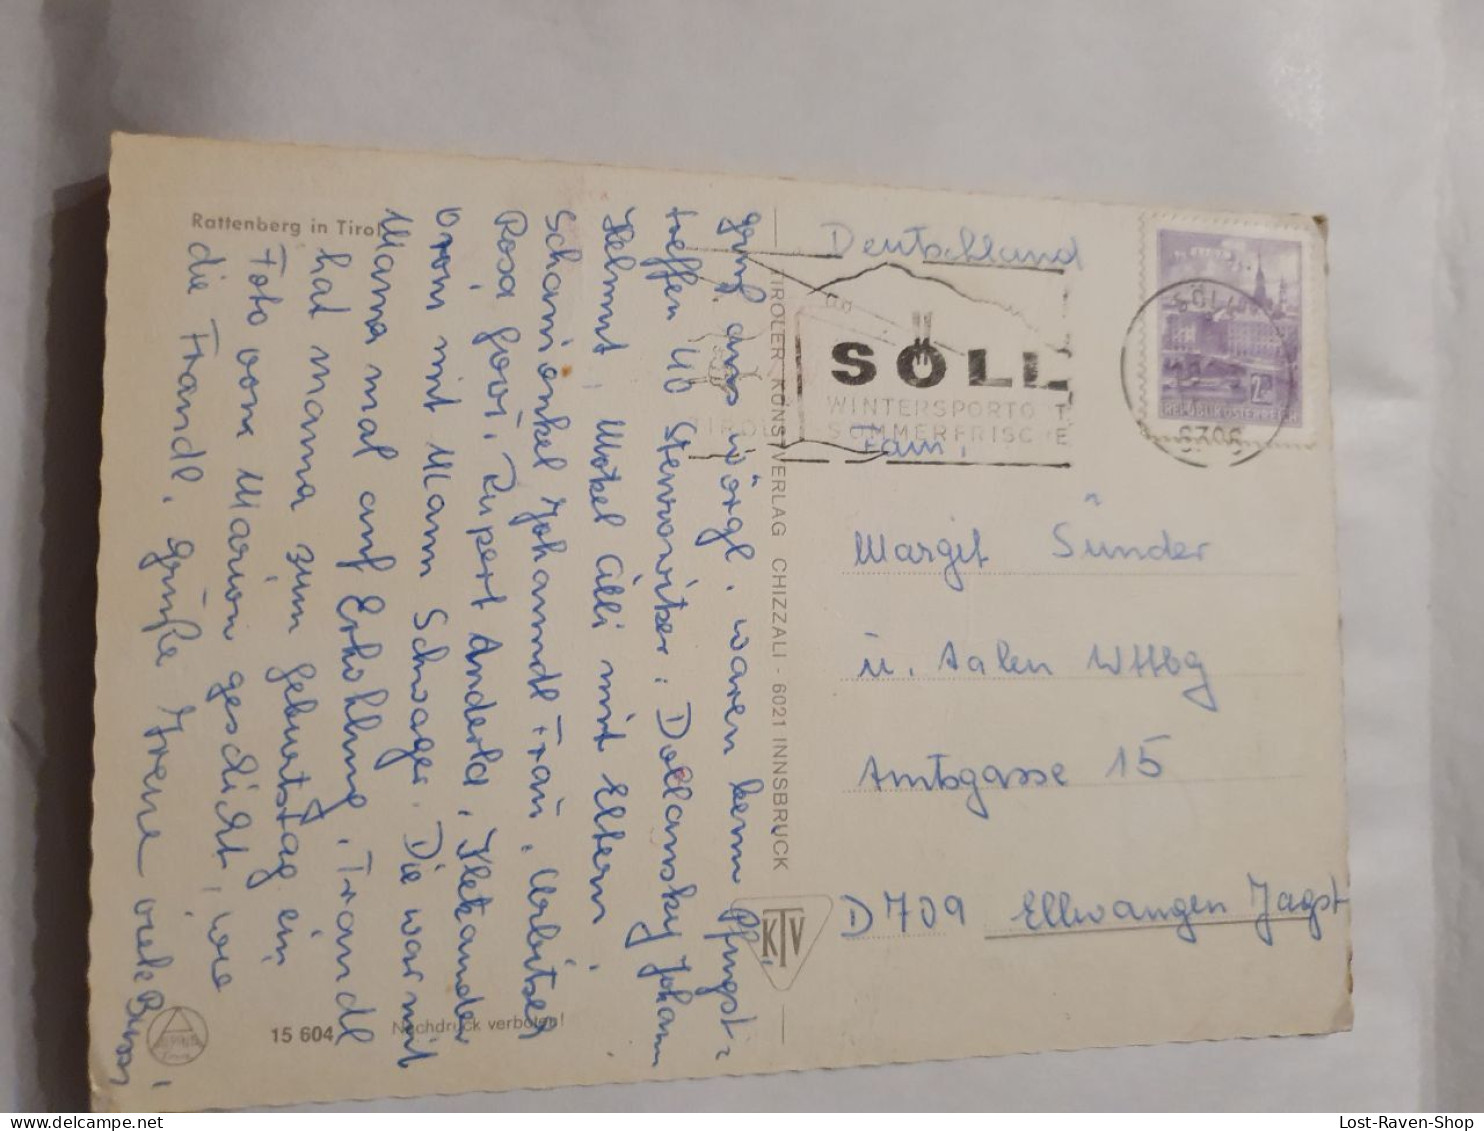 Rattenberg in Tirol
Gruß aus Wörgl. waren beim Pfingst-
treffen Ub Stenowitzer, Dollansky Johann
Helmut, Motel Alli mit Eltern
Schani onkel Johanndl Frau,
Rosa Govi, Rupert Anderla,
vom mit Mann Schwager. Die war mit
Mama mal auf Erhohlung, Traudl
hat mama zum Geburtstag ein
Foto vom Marion geschickt, wie
die Traudl, grüße Irene viele Bussi,
15 604
Nachdruck verboten!
TIROLER KUNSTVERLAG CHIZZALI - 6021 INNSBRUCK
KTV
Deutschland
SÖLL
WINTERSPORTORT
SOMMERFRISCHE
TIROL
SÖLL
6306
REPUBLIK ÖSTERREICH
Fam,
Margit Sünder
u. Aalen Wttbg
Amtsgasse 15
D 709 Ellwangen Jagst
Lost-Raven-Shop